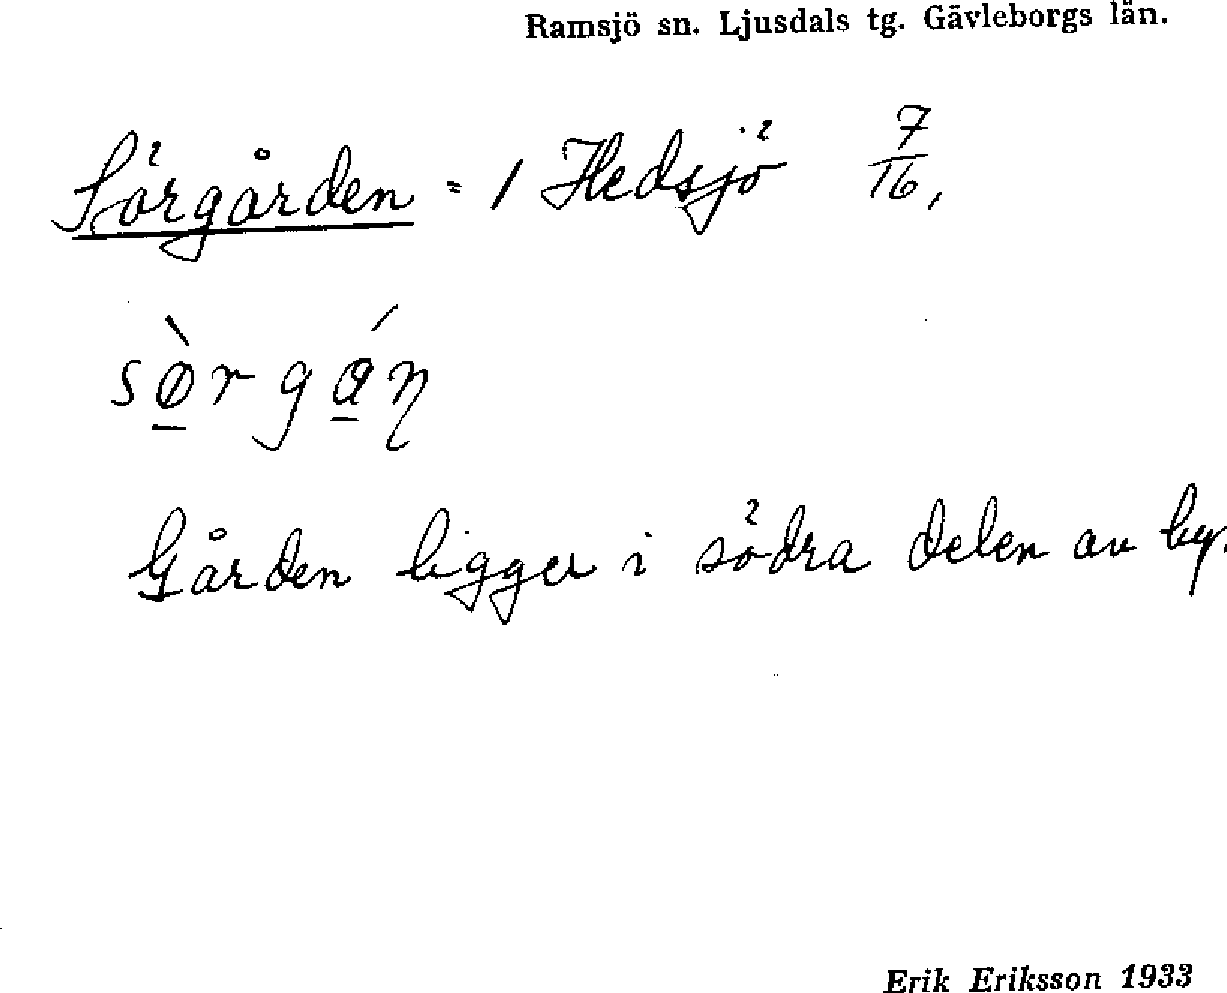 Ramsjö sn. Ljusdals tg. Gävleborgs län.
Sörgården = 1 Hedsjö 7/16,
sø̀rgɑ́ɳ
Gården ligger i södra delen av by.
Erik Eriksson 1933